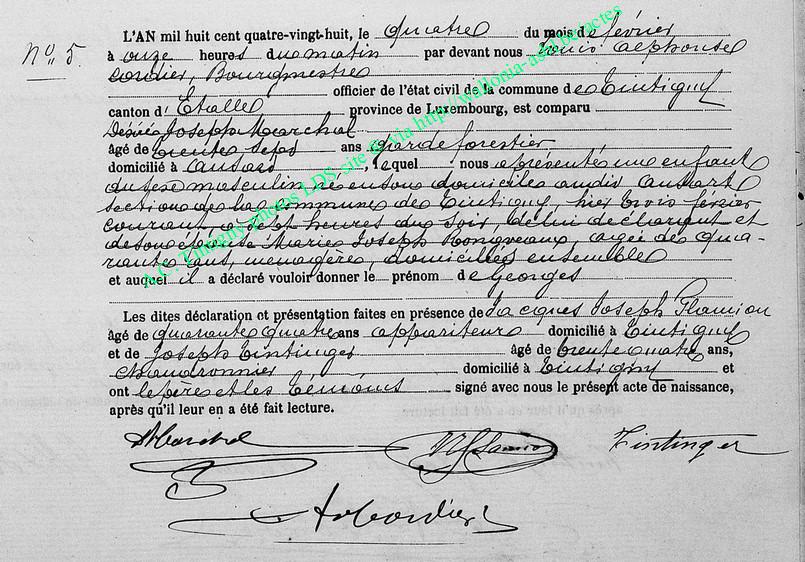 No 5.
L'AN mil huit cent quatre-vingt-huit, le quatre du mois de février
à onze heures du matin par devant nous Louis Alphonse
Cordier, Bourgmestre
officier de l'état civil de la commune de Tintigny
canton d'Etalle province de Luxembourg, est comparu
Désiré Joseph Marchal
âgé de trente sept ans garde forestier
domicilié à Ansart, lequel nous a présenté un enfant
du sexe masculin né en son domicile audit Ansart
section de la commune de Tintigny, hier trois février
courant à sept heures du soir, de lui déclarant et
de son épouse Marie Joseph Rongveaux, agée de qua-
rante ans, ménagère, domiciliés ensemble
et auquel il a déclaré vouloir donner le prénom de Georges
Les dites déclaration et présentation faites en présence de Jacques Joseph Flamion
âgé de quarante quatre ans appariteur domicilié à Tintigny
et de Joseph Tintinger âgé de trente quatre ans,
chaudronnier domicilié à Tintigny et
ont le père et les témoins signé avec nous le présent acte de naissance,
après qu'il leur en a été fait lecture.
DMarchal JJFlamion Tintinger
ACordier
A.C. Tintigny photos LDS site & via http://wallonia-asbl.be/actes